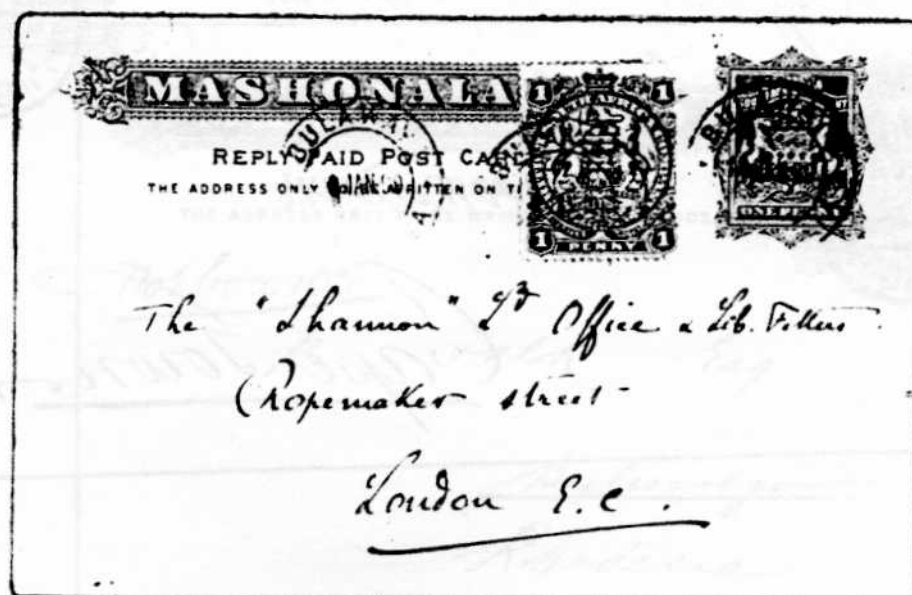 MASHONALA
REPLY PAID POST CARD
THE ADDRESS ONLY TO BE WRITTEN ON T
BULAW
1 1
PENNY
1 1
ONE PENNY
The "Shannon" Ld Office & Lib. Fitters
Ropemaker street
London E.C.